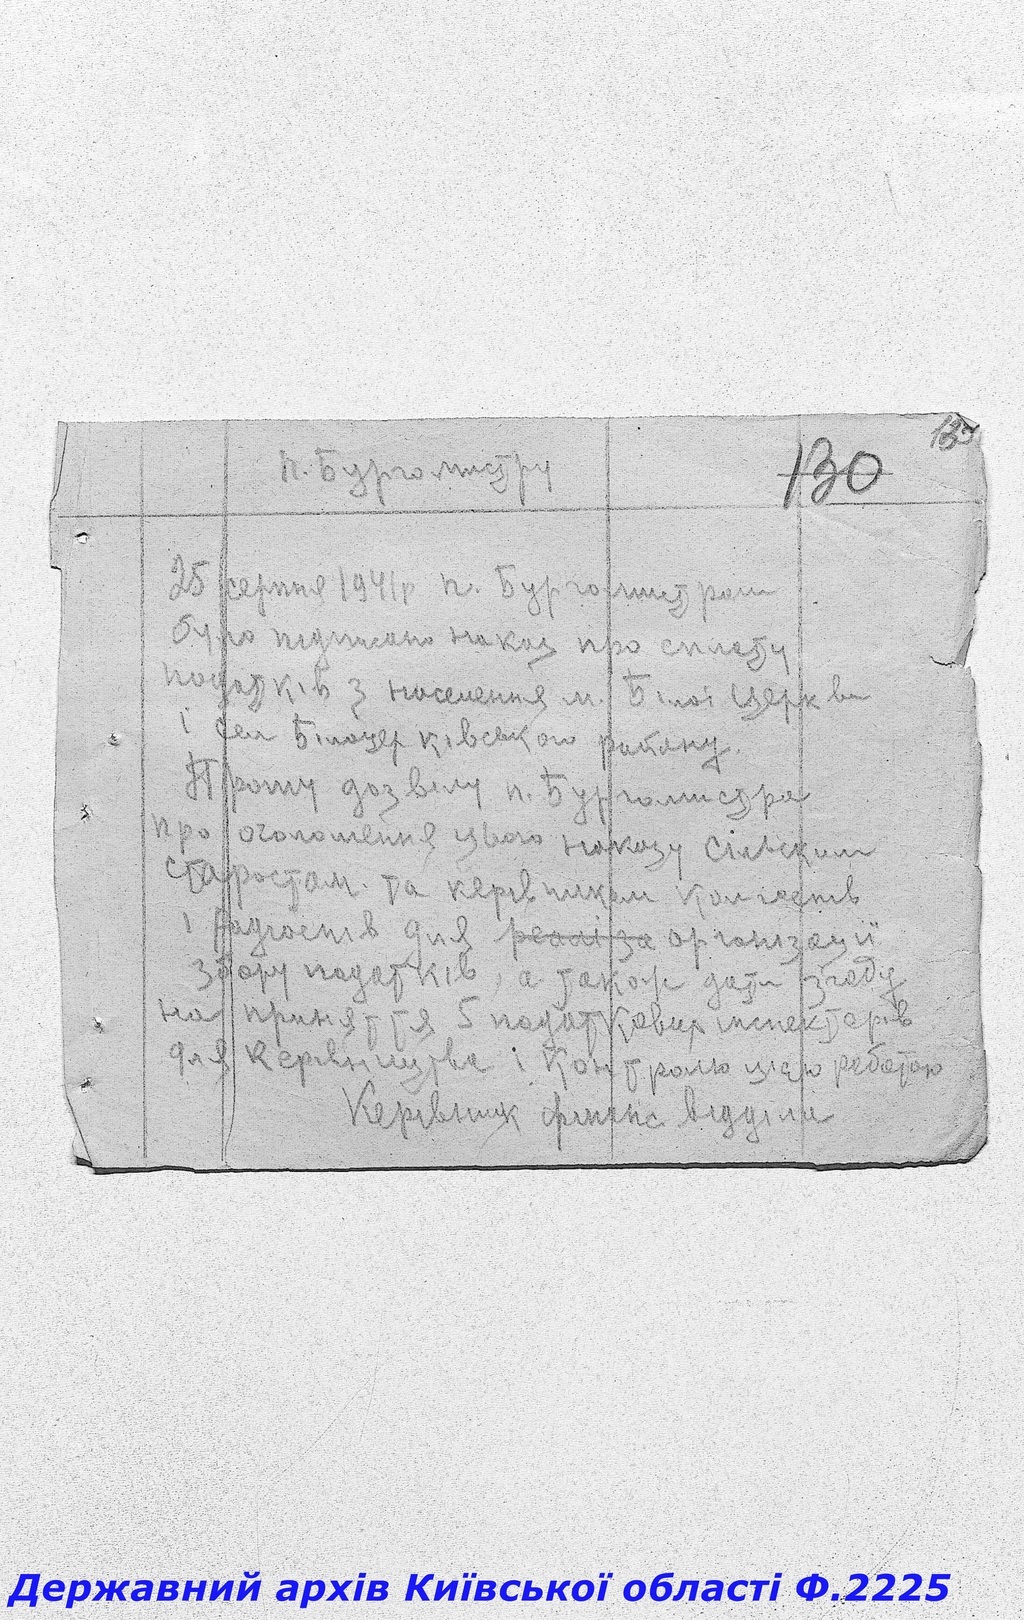 п. Бургомистру
130
25 серпня 1941р п. Бургомистром
було підписано наказ про сплату
податків з населення м. Білої Церкви
і сел Білоцерківського району.
Прошу дозвілу п. Бургомистра
про оголошення цього наказу сільским
старостам та керівникам колгоспів
і радгоспів для реаліза організації
збору податків, а також дати згоду
на прийняття 5 податкових інспекторів
для керівництва і контролю цією роботою
Керівник фінанс відділа
Державний архів Київської області Ф.2225